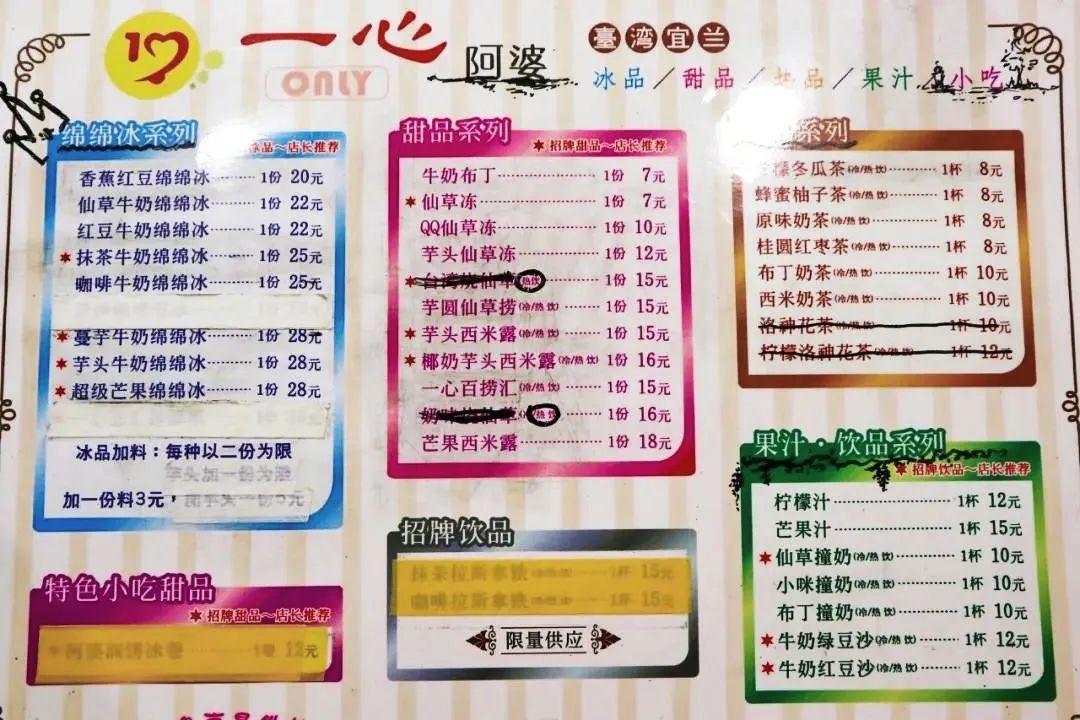 一心
ONLY
阿婆
臺湾宜兰
冰品／甜品／热品／果汁／小吃
绵绵冰系列
店长推荐
香蕉红豆绵绵冰 1份 20元
仙草牛奶绵绵冰 1份 22元
红豆牛奶绵绵冰 1份 22元
抹茶牛奶绵绵冰 1份 25元
咖啡牛奶绵绵冰 1份 25元
蔓芋牛奶绵绵冰 1份 28元
芋头牛奶绵绵冰 1份 28元
超级芒果绵绵冰 1份 28元
冰品加料：每种以二份为限
加一份料3元，
特色小吃甜品
招牌甜品～店长推荐
1卷 12元
甜品系列
招牌甜品～店长推荐
牛奶布丁 1份 7元
仙草冻 1份 7元
QQ仙草冻 1份 10元
芋头仙草冻 1份 12元
台湾烧仙草(热饮) 1份 15元
芋圆仙草捞(冷/热 饮) 1份 15元
芋头西米露(冷/热 饮) 1份 15元
椰奶芋头西米露(冷/热 饮) 1份 16元
一心百捞汇(冷/热 饮) 1份 15元
奶味烧仙草(热饮) 1份 16元
芒果西米露 1份 18元
招牌饮品
抹茶拉斯拿铁(冷/热 饮) 1杯 15元
咖啡拉斯拿铁(冷/热 饮) 1杯 15元
限量供应
系列
柠檬冬瓜茶(冷/热 饮) 1杯 8元
蜂蜜柚子茶(冷/热 饮) 1杯 8元
原味奶茶(冷/热 饮) 1杯 8元
桂圆红枣茶(冷/热 饮) 1杯 8元
布丁奶茶(冷/热 饮) 1杯 10元
西米奶茶(冷/热 饮) 1杯 10元
洛神花茶(冷/热 饮) 1杯 10元
柠檬洛神花茶(冷/热 饮) 1杯 12元
果汁·饮品系列
招牌饮品～店长推荐
柠檬汁 1杯 12元
芒果汁 1杯 15元
仙草撞奶(冷/热 饮) 1杯 10元
小咪撞奶(冷/热 饮) 1杯 10元
布丁撞奶(冷/热 饮) 1杯 10元
牛奶绿豆沙(冷/热 饮) 1杯 12元
牛奶红豆沙(冷/热 饮) 1杯 12元